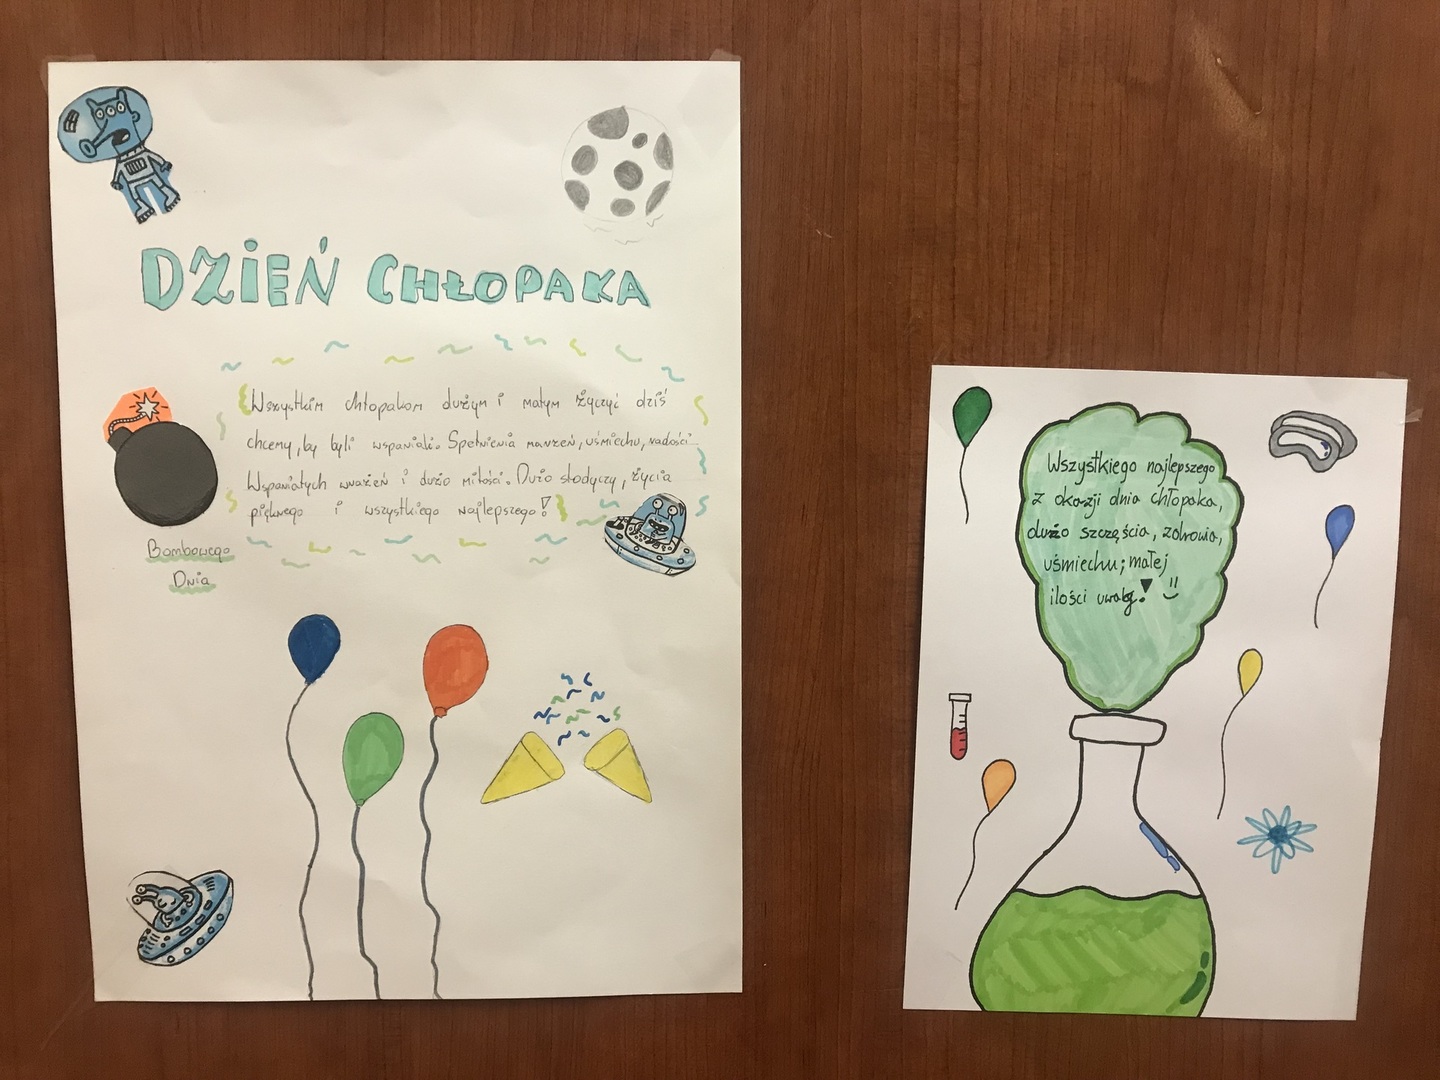 DZIEŃ CHŁOPAKA
Wszystkim chłopakom dużym i małym życzyć dziś
chcemy, by byli wspaniali. Spełnienia marzeń, uśmiechu, radości
Wspaniałych wrażeń i dużo miłości. Dużo słodyczy, życia
pięknego i wszystkiego najlepszego!
Bombowego
Dnia
Wszystkiego najlepszego
z okazji dnia chłopaka,
dużo szczęścia, zdrowia,
uśmiechu; małej
ilości uwag!